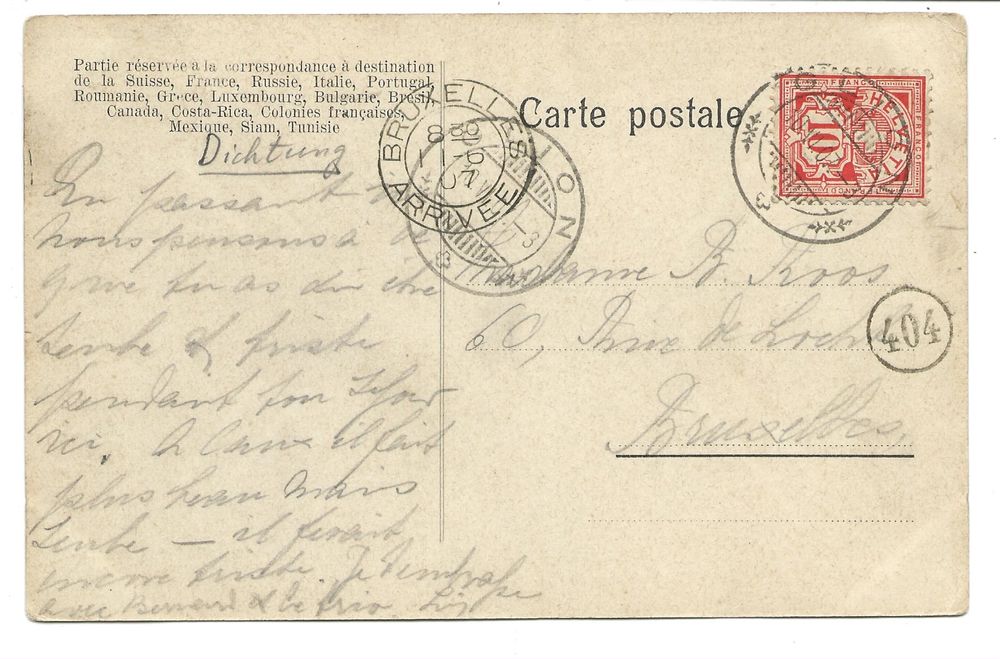 Partie réservée à la correspondance à destination
de la Suisse, France, Russie, Italie, Portugal
Roumanie, Grèce, Luxembourg, Bulgarie, Brésil
Canada, Costa-Rica, Colonies françaises,
Mexique, Siam, Tunisie
Carte postale
BRUXELLES
ARRIVEE
FRANCO
HELVETIA
10
Dichtung
En passant
nous pensons à
que tu as dû être
seule & triste
pendant ton séjour
ici. il fait
plus beau mais
seule — il ferait
encore triste. Je t'embrasse
avec Bernard &
Madame B. Koos
60, de
Bruxelles.
404